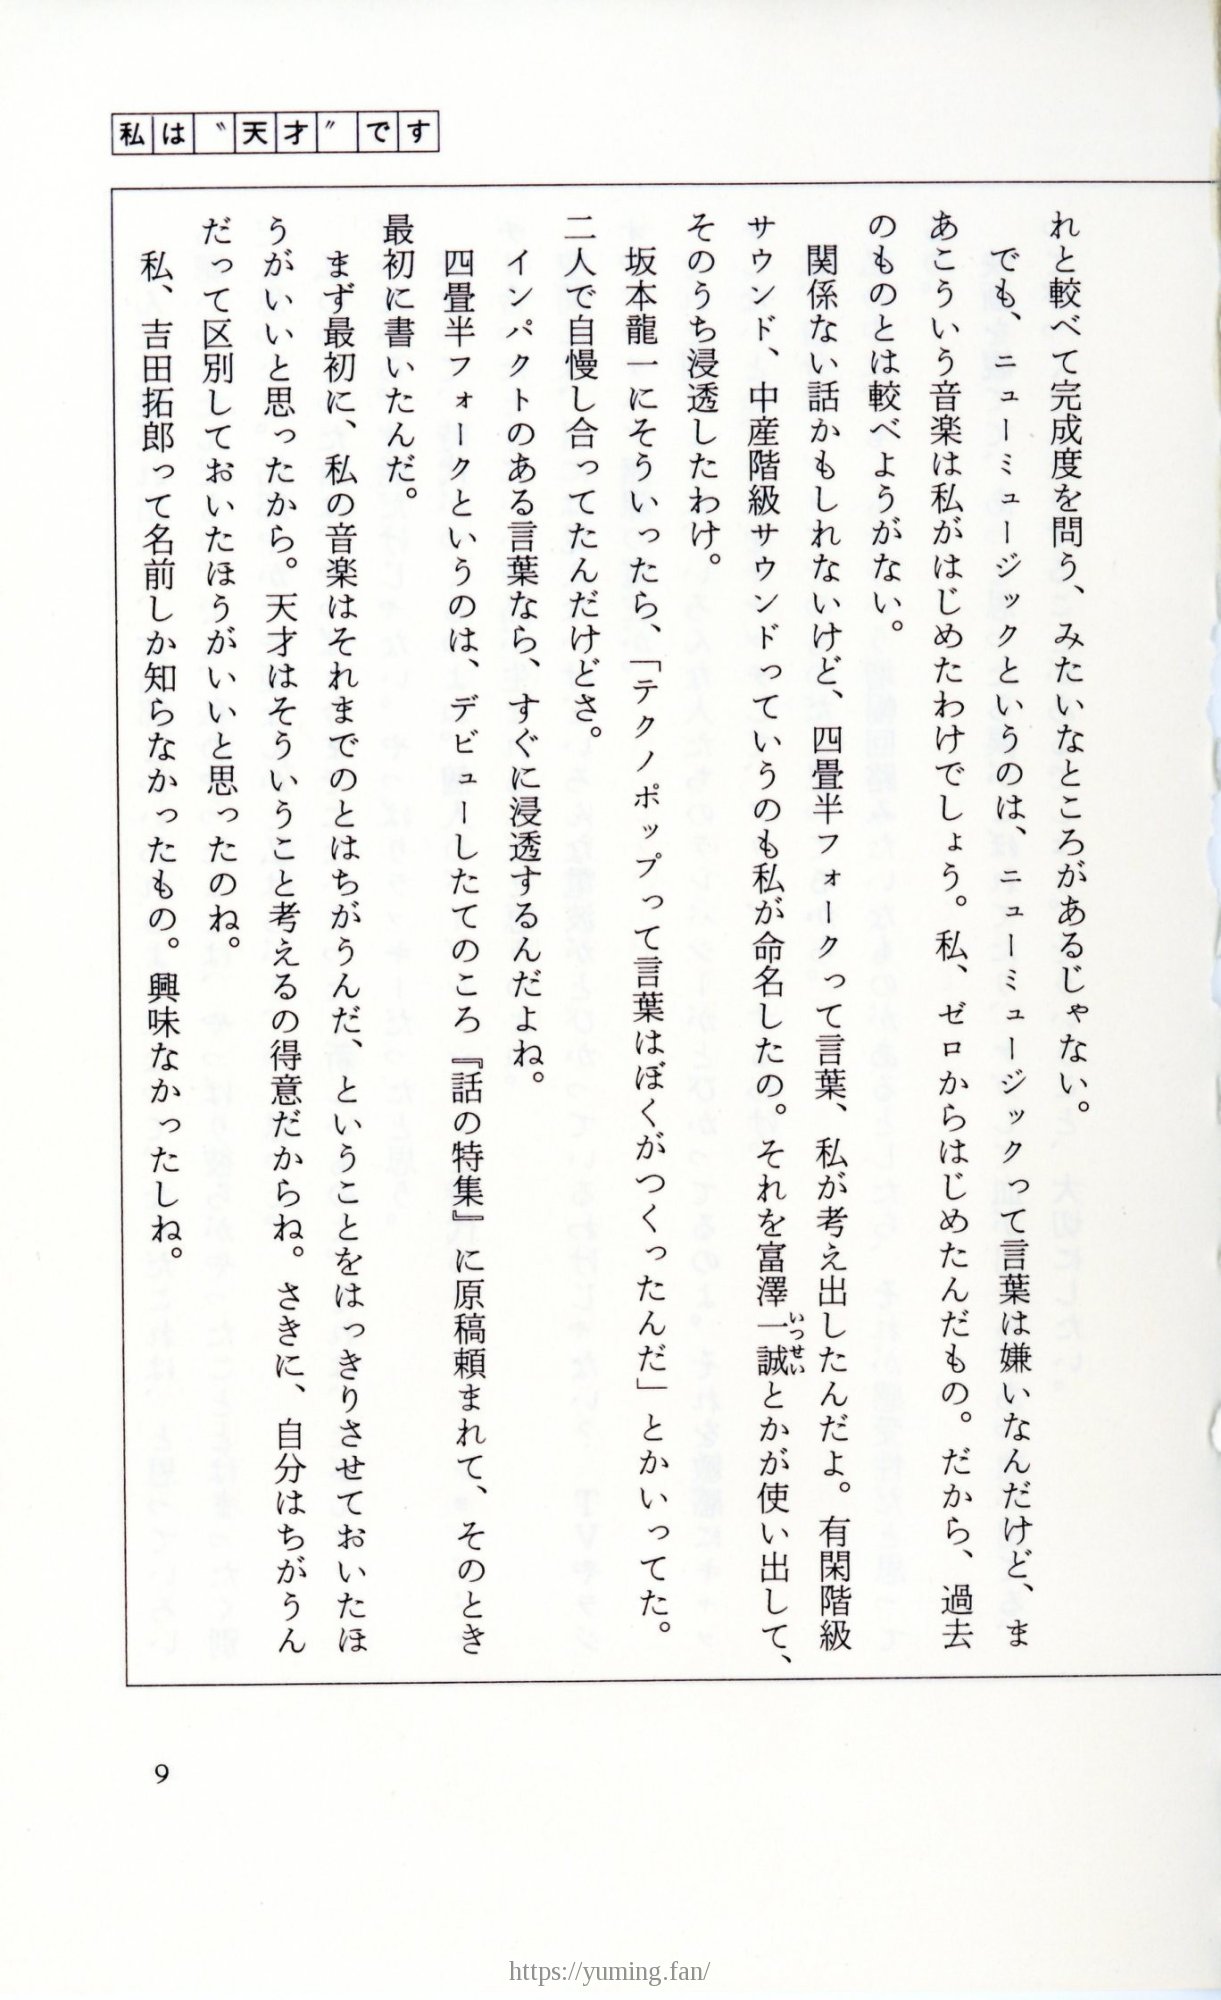 私は〝天才〟です
れと較べて完成度を問う、みたいなところがあるじゃない。
でも、ニューミュージックというのは、ニューミュージックって言葉は嫌いなんだけど、ま
あこういう音楽は私がはじめたわけでしょう。私、ゼロからはじめたんだもの。だから、過去
のものとは較べようがない。
関係ない話かもしれないけど、四畳半フォークって言葉、私が考え出したんだよ。有閑階級
サウンド、中産階級サウンドっていうのも私が命名したの。それを富澤一誠いっせいとかが使い出して、
そのうち浸透したわけ。
坂本龍一にそういったら、「テクノポップって言葉はぼくがつくったんだ」とかいってた。
二人で自慢し合ってたんだけどさ。
インパクトのある言葉なら、すぐに浸透するんだよね。
四畳半フォークというのは、デビューしたてのころ『話の特集』に原稿頼まれて、そのとき
最初に書いたんだ。
まず最初に、私の音楽はそれまでのとはちがうんだ、ということをはっきりさせておいたほ
うがいいと思ったから。天才はそういうこと考えるの得意だからね。さきに、自分はちがうん
だって区別しておいたほうがいいと思ったのね。
私、吉田拓郎って名前しか知らなかったもの。興味なかったしね。
9
https://yuming.fan/